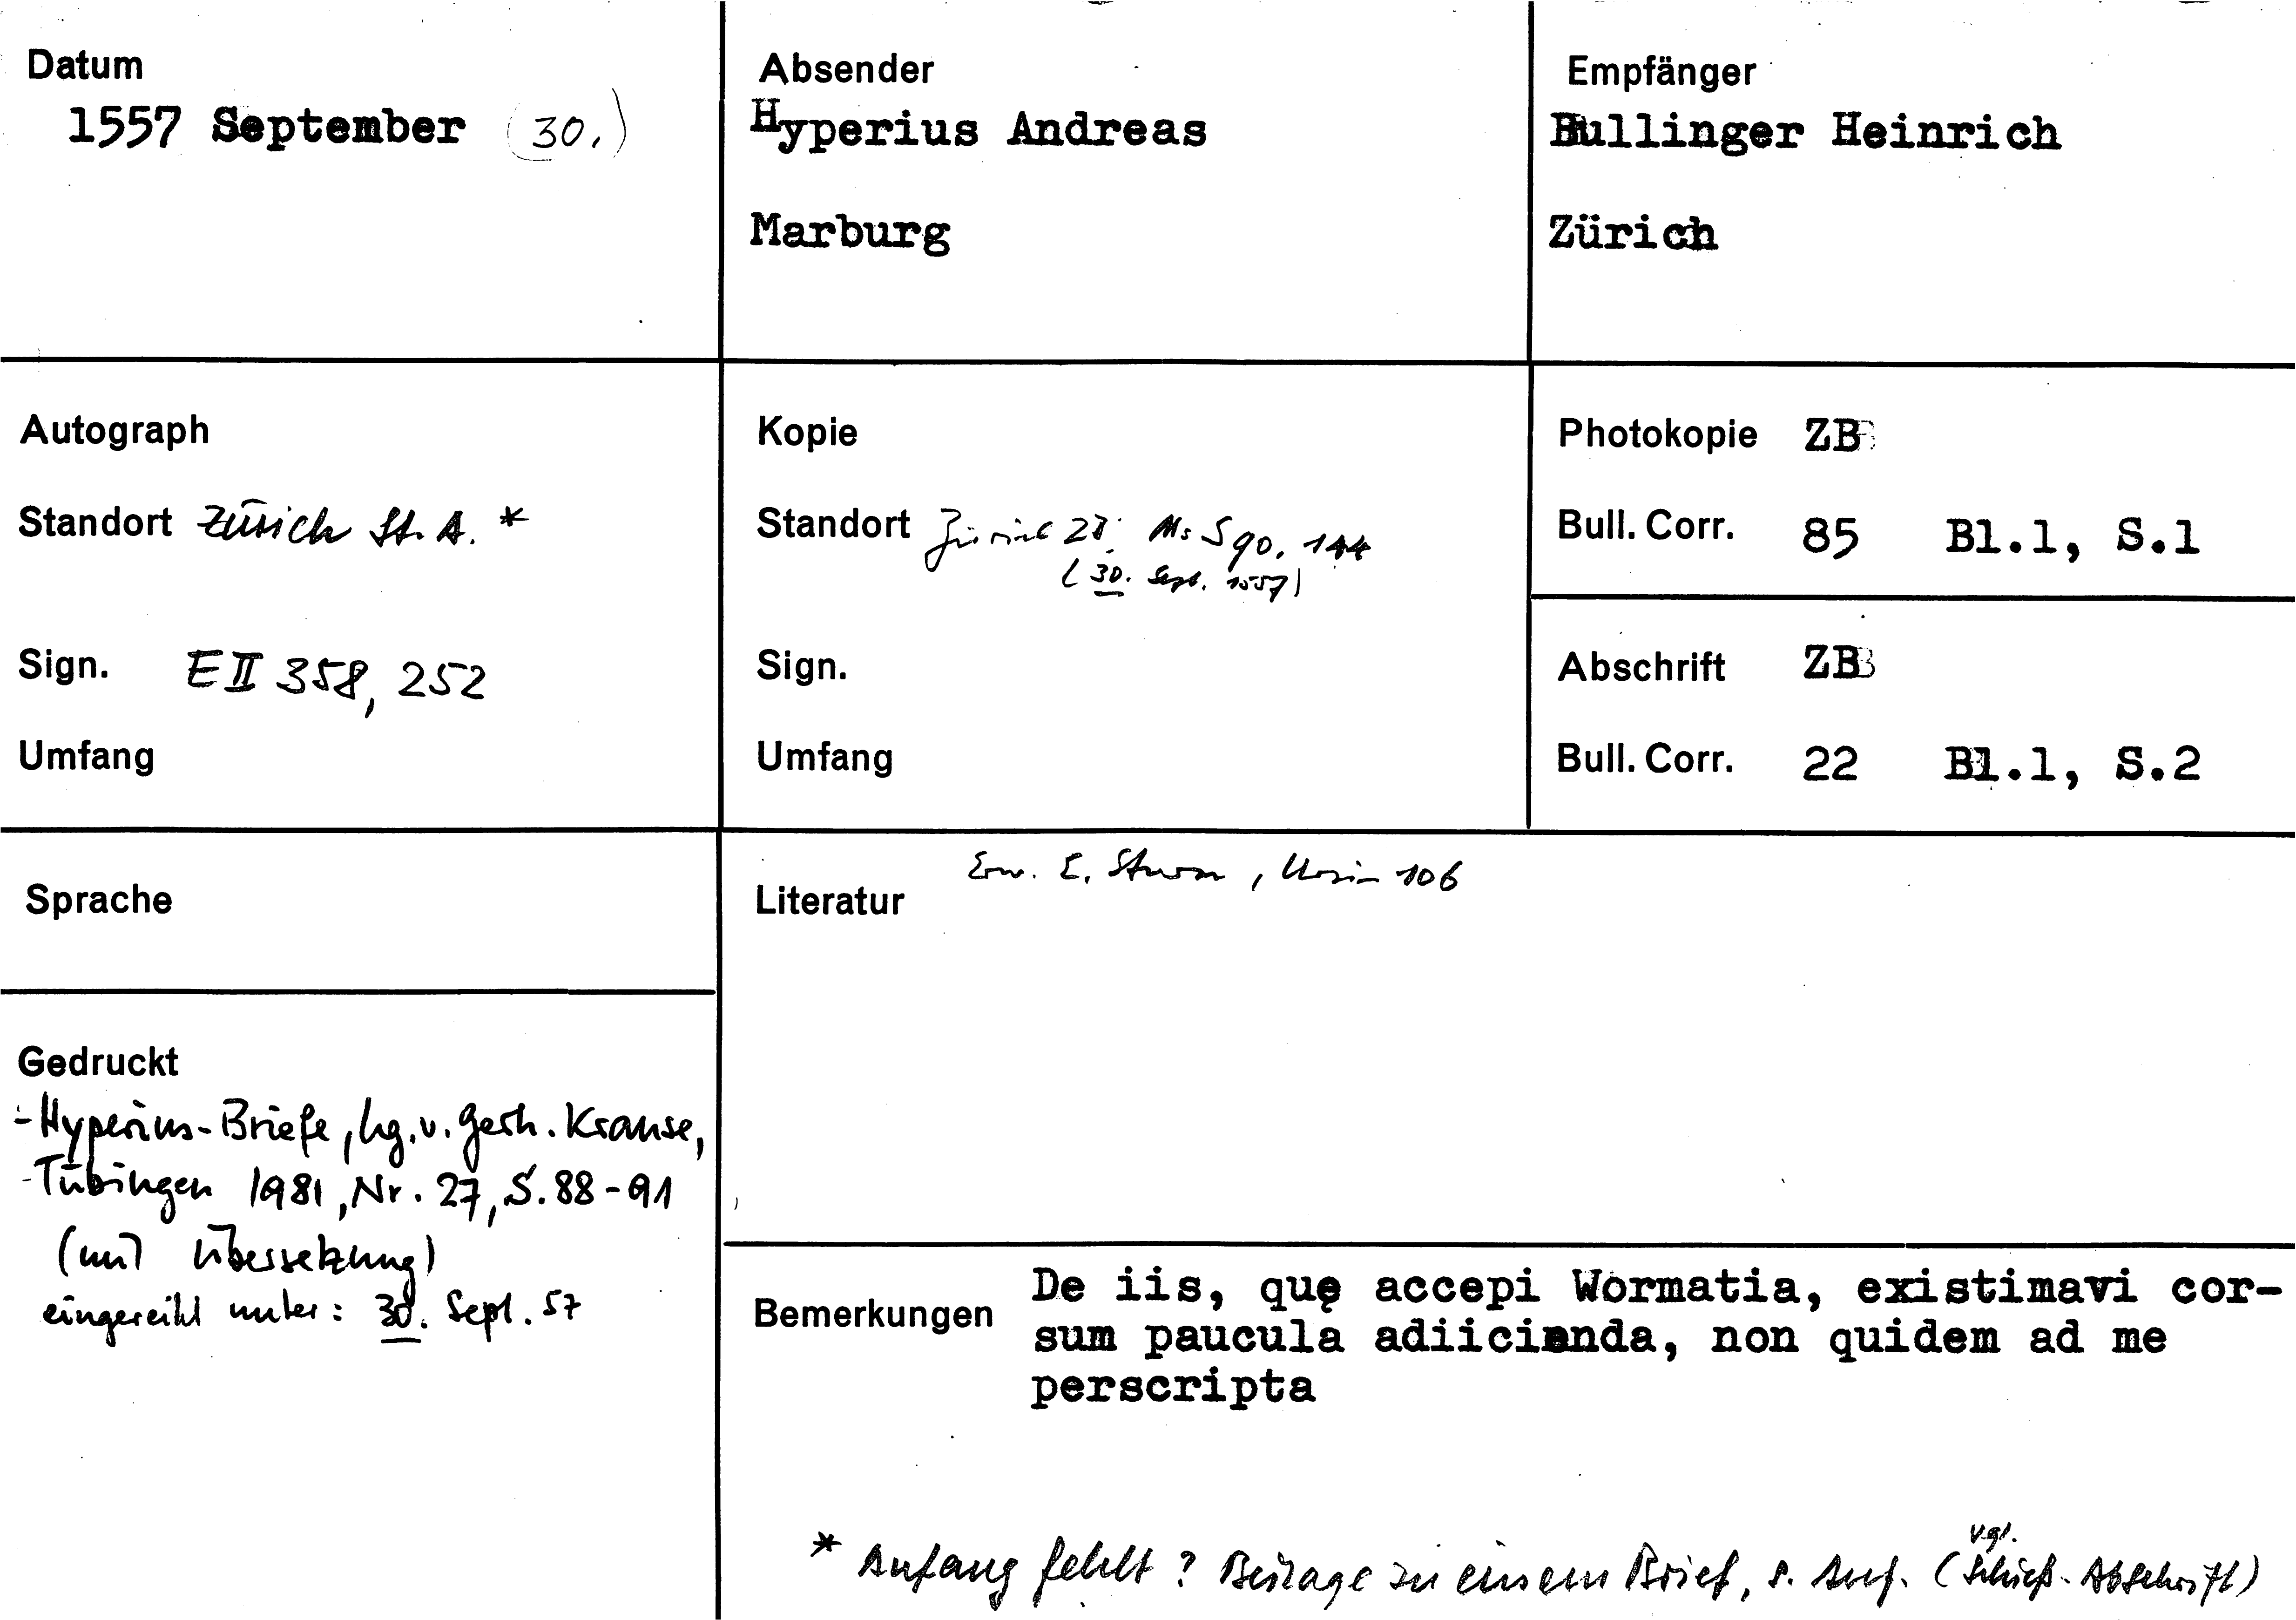 Datum
1557 September (30.)
Absender
Hyperius Andreas
Marburg
Empfänger
Bullinger Heinrich
Zürich
Autograph
Standort Zürich St. A. *
Sign. E II 358, 252
Umfang
Kopie
Standort Zürich ZB. Ms S 90, 144
(30. Sept. 1557)
Sign.
Umfang
Photokopie ZB
Bull. Corr. 85 Bl.1, S.1
Abschrift ZB
Bull. Corr. 22 Bl.1, S.2
Sprache
Literatur Erw. E. Sturm, Ursin 106
Gedruckt
- Hyperius-Briefe, hg. v. Gerh. Krause,
- Tübingen 1981, Nr. 27, S. 88-91
(mit Übersetzung)
eingereiht unter: 30. Sept. 57
Bemerkungen De iis, quę accepi Wormatia, existimavi cor-
sum paucula adiicienda, non quidem ad me
perscripta
* Anfang fehlt? Beilage zu einem Brief, s. Anf. (vgl. Schieß-Abschrift)